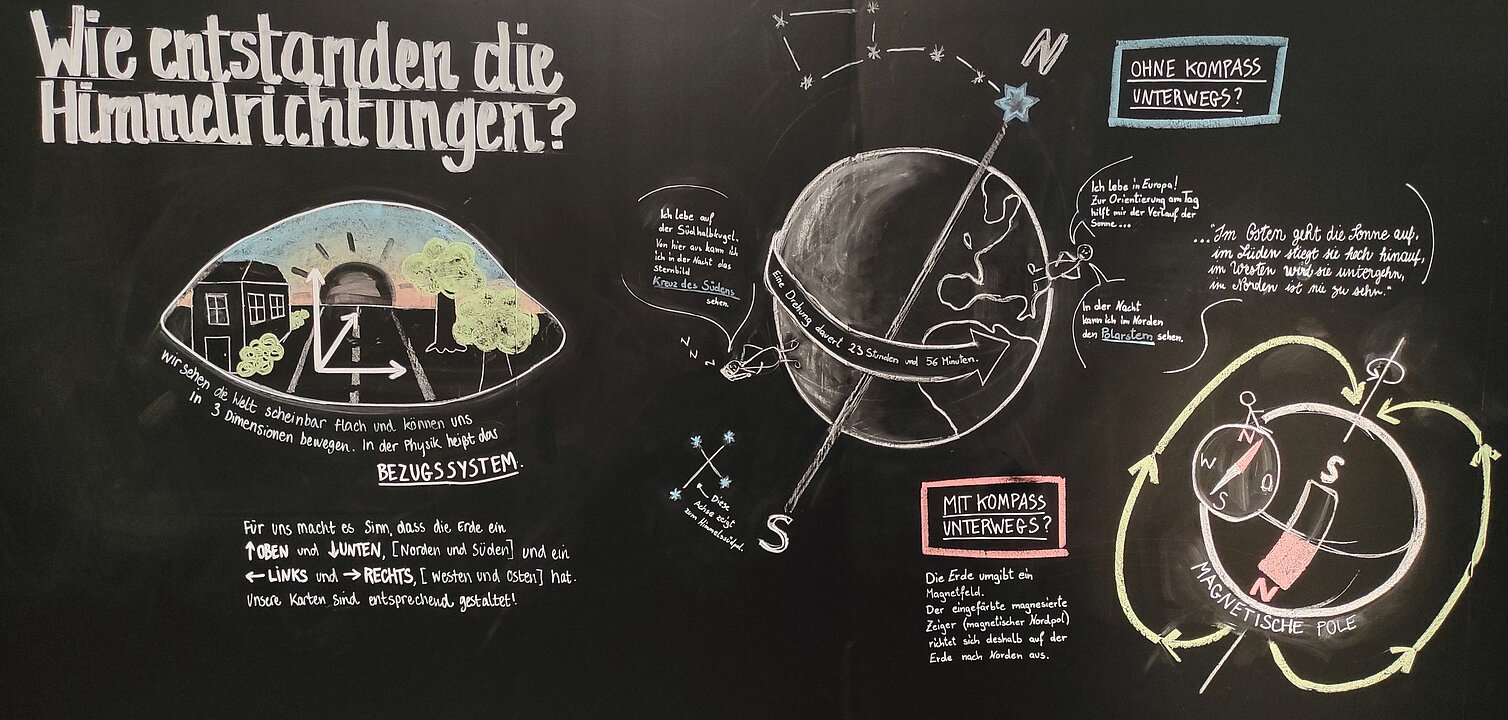 Wie entstanden die
Himmelrichtungen?
Wir sehen die Welt scheinbar flach und können uns
in 3 Dimensionen bewegen. In der Physik heißt das
BEZUGSSYSTEM.
Für uns macht es Sinn, dass die Erde ein
↑OBEN und ↓UNTEN, [Norden und Süden] und ein
←LINKS und →RECHTS, [Westen und Osten] hat.
Unsere Karten sind entsprechend gestaltet!
N
Ich lebe auf
der Südhalbkugel.
Von hier aus kann ich
ich in der Nacht das
Sternbild
Kreuz des Südens
sehen.
N N N
Eine Drehung dauert 23 Stunden und 56 Minuten.
Diese
Achse zeigt
zum Himmelssüdpol.
S
OHNE KOMPASS
UNTERWEGS?
Ich lebe in Europa!
Zur Orientierung am Tag
hilft mir der Verlauf der
Sonne...
..."Im Osten geht die Sonne auf,
im Süden stiegt sie hoch hinauf,
im Westen wird sie untergehn,
im Norden ist nie zu sehn."
In der Nacht
kann ich im Norden
den Polarstern sehen.
MIT KOMPASS
UNTERWEGS?
Die Erde umgibt ein
Magnetfeld.
Der eingefärbte magnesierte
Zeiger (magnetischer Nordpol)
richtet sich deshalb auf der
Erde nach Norden aus.
N
W
O
S
S
N
MAGNETISCHE POLE